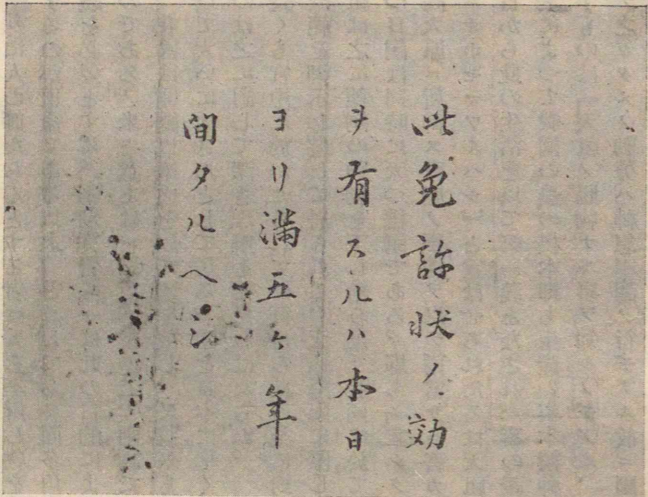 此免許状ノ効
ヲ有スルハ本日
ヨリ満五ヶ年
間タルヘシ